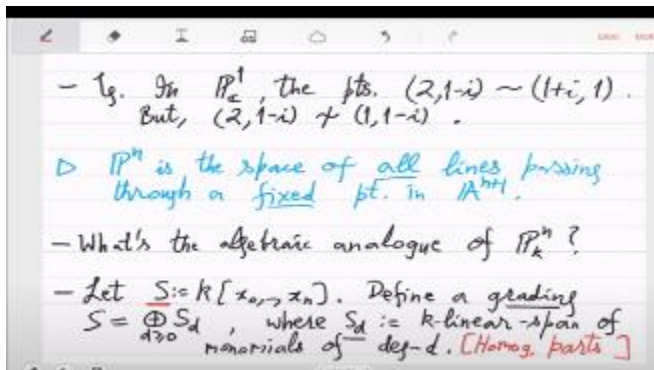 - Eg. In ℙ¹_ℂ, the pts. (2,1-i) ~ (1+i, 1).
But, (2,1-i) ≁ (1,1-i).
▷ ℙⁿ is the space of all lines passing
through a fixed pt. in 𝔸ⁿ⁺¹.
- What's the algebraic analogue of ℙⁿ_k ?
- Let S := k[x₀,..,xₙ]. Define a grading
S = ⊕_{d≥0} S_d , where S_d := k-linear-span of
monomials of deg-d. [Homog. parts]